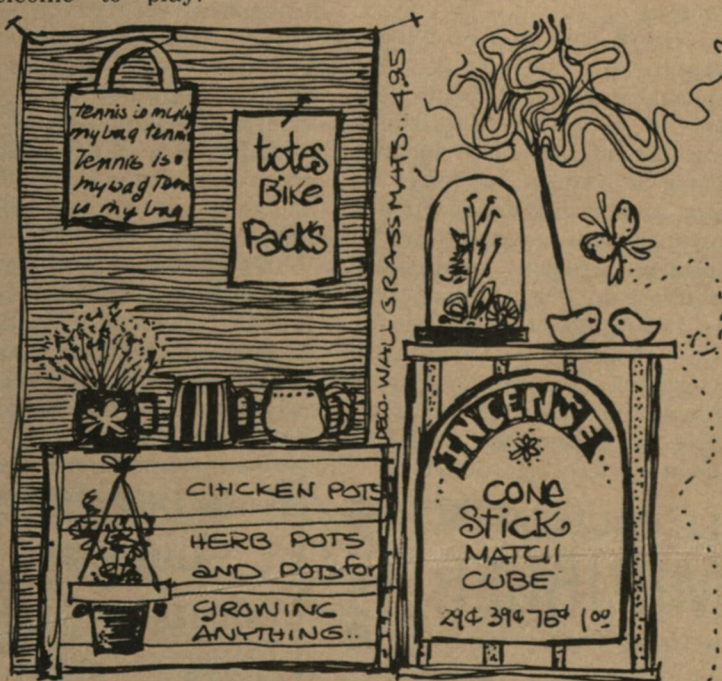 welcome to play.
tennis is my
my bag tennis
Tennis is
my bag Tenn
is my bag
totes
Bike
Packs
DECO-WALL GRASS MATS..4.95
CHICKEN POTS
HERB POTS
and POTS for
GROWING
ANYTHING..
INCENSE
CONE
Stick
MATCH
CUBE
29¢ 39¢ 75¢ 1.00